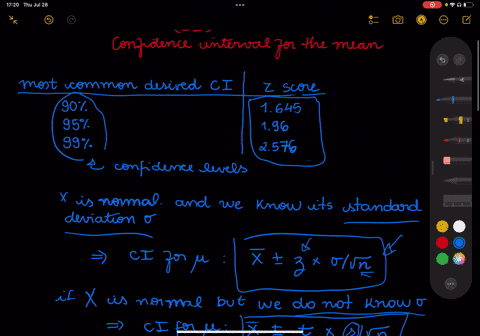 17:20 Thu Jul 28
Confidence interval for the mean
most common desired CI Z score
90% 1.645
95% 1.96
99% 2.576
confidence levels
X is normal and we know its standard
deviation σ
⇒ CI for μ : X̅ ± z × σ/√n
if X is normal but we do not know σ
⇒ CI for μ: X̅ ± t × s/√n